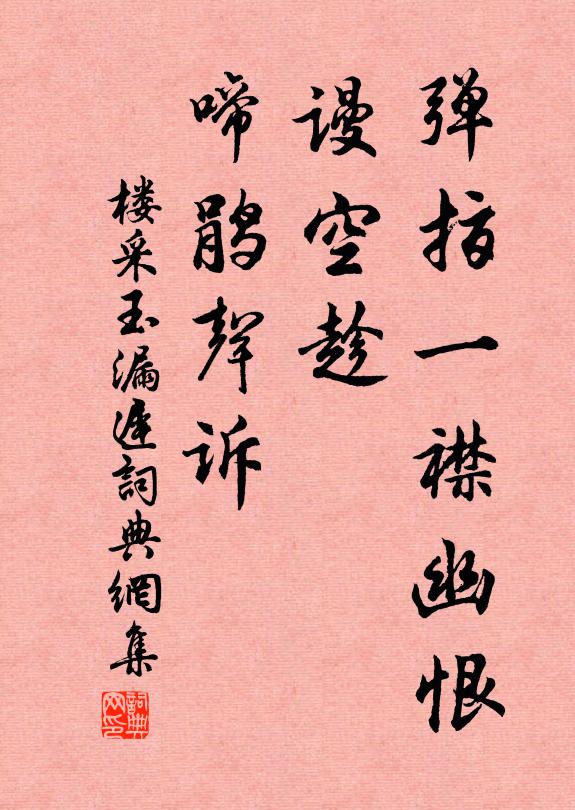 弹指一襟幽恨
谩空趁
啼鹃声诉
楼采玉漏遲詞典網集
詞典网印